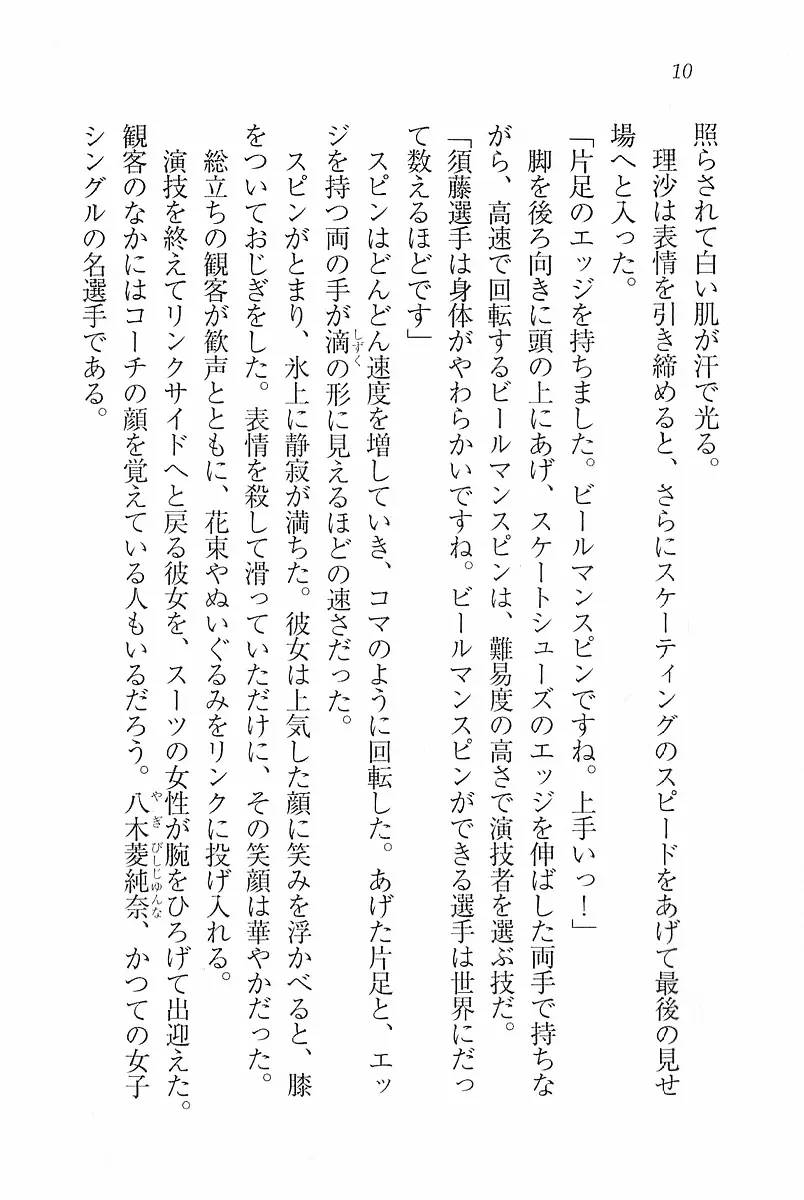 10
照らされて白い肌が汗で光る。
理沙は表情を引き締めると、さらにスケーティングのスピードをあげて最後の見せ
場へと入った。
「片足のエッジを持ちました。ビールマンスピンですね。上手いっ！」
脚を後ろ向きに頭の上にあげ、スケートシューズのエッジを伸ばした両手で持ちな
がら、高速で回転するビールマンスピンは、難易度の高さで演技者を選ぶ技だ。
「須藤選手は身体がやわらかいですね。ビールマンスピンができる選手は世界にだっ
て数えるほどです」
スピンはどんどん速度を増していき、コマのように回転した。あげた片足と、エッ
ジを持つ両の手が滴の形に見えるほどの速さだった。
しずく
スピンがとまり、氷上に静寂が満ちた。彼女は上気した顔に笑みを浮かべると、膝
をついておじぎをした。表情を殺して滑っていただけに、その笑顔は華やかだった。
総立ちの観客が歓声とともに、花束やぬいぐるみをリンクに投げ入れる。
演技を終えてリンクサイドへと戻る彼女を、スーツの女性が腕をひろげて出迎えた。
観客のなかにはコーチの顔を覚えている人もいるだろう。八木菱純奈、かつての女子
やぎびしじゅんな
シングルの名選手である。